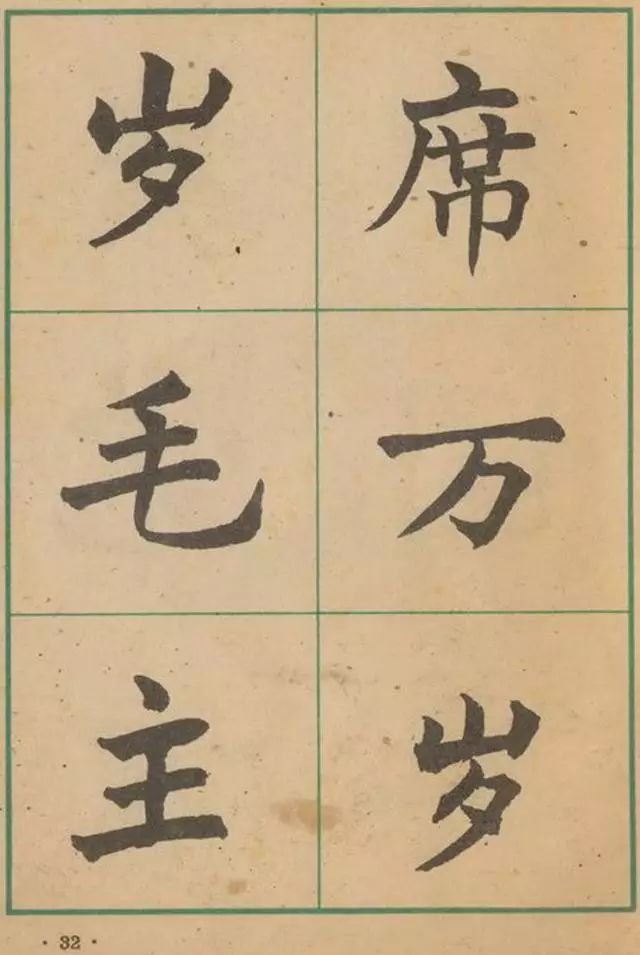 席万岁
岁毛主
· 32 ·